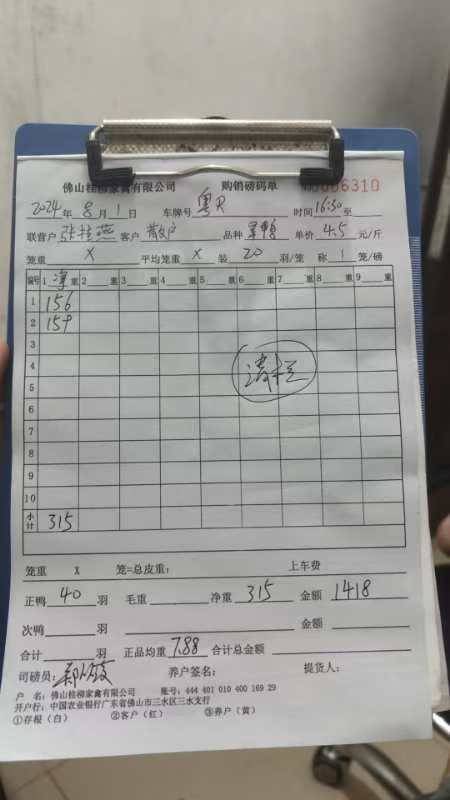 佛山桂柳家禽有限公司 购销磅码单 0006310
2024年8月1日 车牌号 粤R 时间16:30至
联营户 张桂燕 客户 散户 品种 单价 4.5 元/斤
笼重 X 平均笼重 X 装 20 羽/笼 称 1 笼/磅
编号 1 净重 2 重 3 重 4 重 5 重 6 重 7 重 8 重 9 重
1 156
2 159
3
4
清栏
5
6
7
8
9
10
小计 315
笼重 X 笼=总皮重: 上车费
正鸭 40 羽 毛重 净重 315 金额 1418
次鸭 羽 金额
合计 羽 正品均重 7.88 合计总金额
司磅员: 养户签名: 提货人:
户 名: 佛山桂柳家禽有限公司 账号: 444 401 010 400 169 29
开户行: 中国农业银行广东省佛山市三水区三水支行
①存根(白) ②客户(红) ③养户(黄)